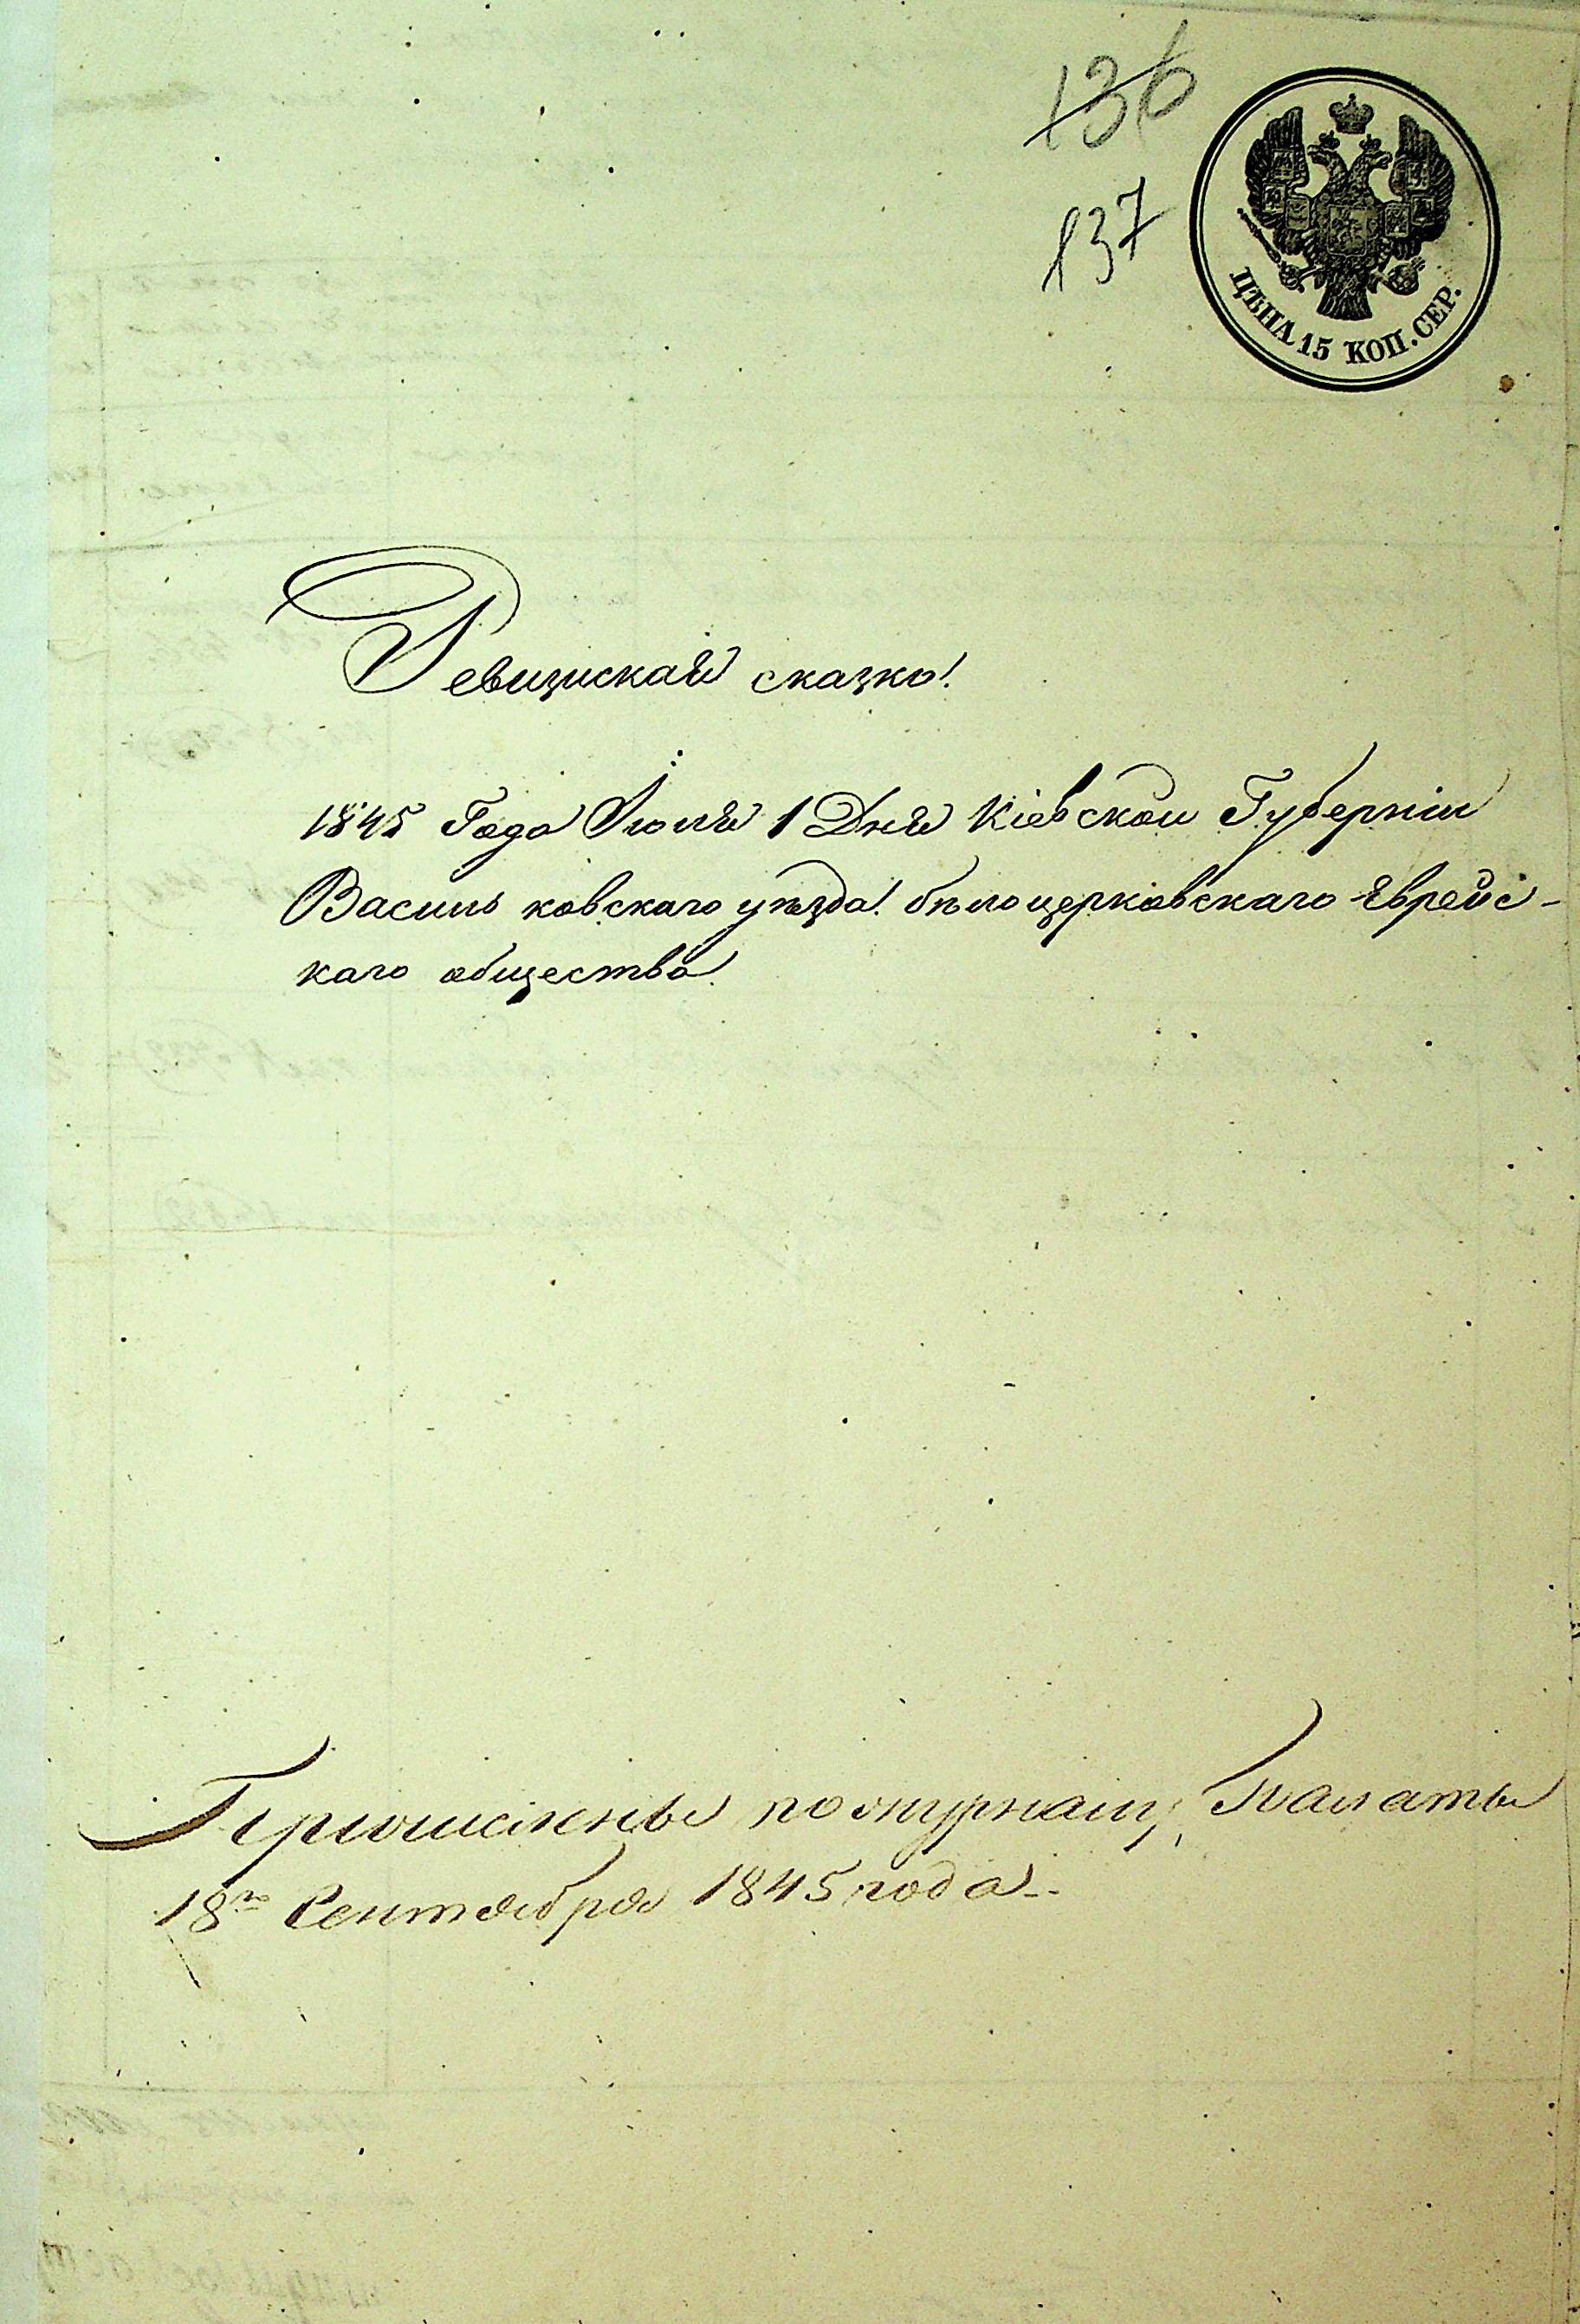 136
137
ЦѢНА 15 КОП. СЕР.
Ревизиская сказка
1845 Года Іюля 1 Дня Кіевскои Губерніи
Василь ковскаго уѣзда бѣлоцерковскаго Еврейс-
каго общества
Причислены по журналу Палаты
18го Сентября 1845 года